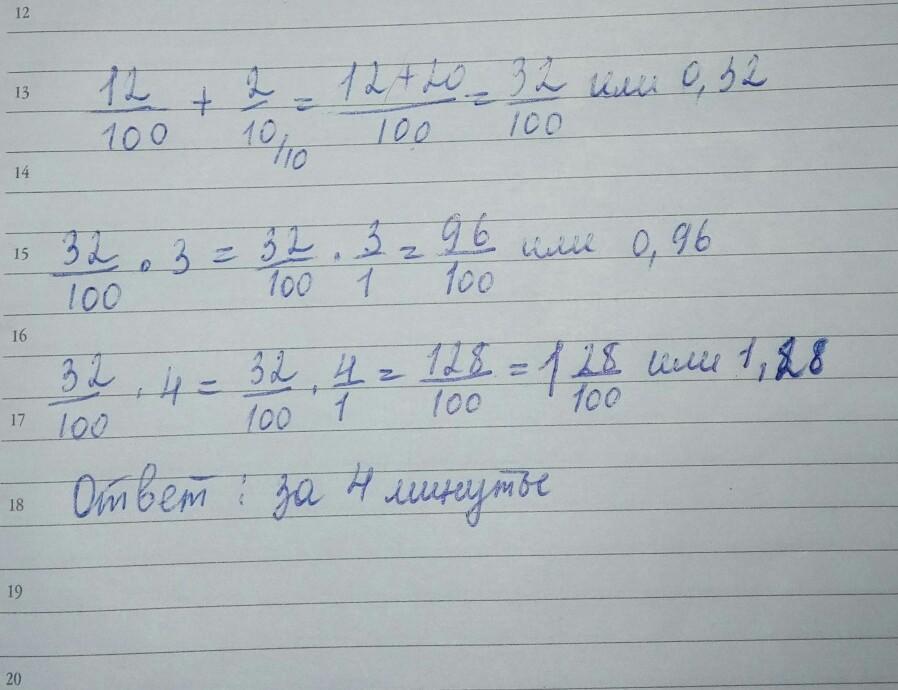 12
13 12/100 + 2/10/10 = 12+20/100 = 32/100 или 0,32
14
15 32/100 · 3 = 32/100 · 3/1 = 96/100 или 0,96
16
32/100 · 4 = 32/100 · 4/1 = 128/100 = 1 28/100 или 1,28
17
18 Ответ: за 4 минуты
19
20